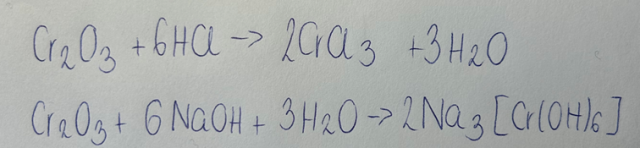 Cr₂O₃ + 6HCl → 2CrCl₃ + 3H₂O
Cr₂O₃ + 6NaOH + 3H₂O → 2Na₃[Cr(OH)₆]